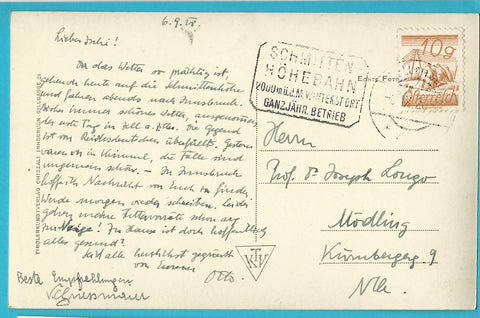 6.9.28.
Lieber Juli!
Da das Wetter so prächtig ist,
gehen wir heute auf die Schmittenhöhe
und fahren abends nach Innsbruck.
immer schönes Wetter, ausgenommen
der erste Tag in Zell a. See. Die Gegend
ist von Reichsdeutschen überfüllt. Gestern
waren wir in Krimml, die Fälle sind
ungemein schön. – In Innsbruck
hoffe ich Nachricht von Euch zu finden.
Werde morgen wieder schreiben. Leider
geht meine schon arg
zur Neige! Zu Hause ist doch hoffentlich
alles gesund?
Seid alle herzlichst gegrüsst
von Eurem
Otto.
Beste Empfehlungen
TIROLER KUNSTVERLAG CHIZZALI INNSBRUCK
SCHMITTEN
HÖHEBAHN
2000 m ü.d.M. WINTERSPORT
GANZJÄHR. BETRIEB
Echte Foto
10g
Österreich
Herrn
Prof. Dr. Joseph Longo
Mödling
Kürnbergerg. 9
N.Oe.
KTV